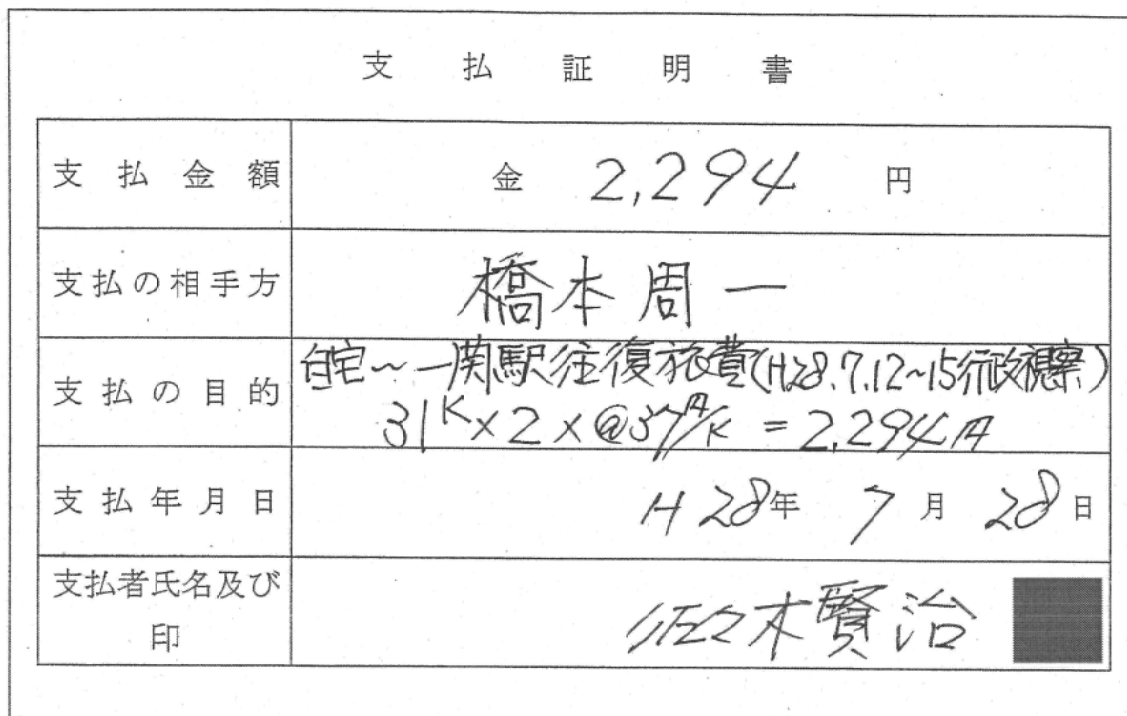 支払証明書
支払金額 金 2,294 円
支払の相手方 橋本周一
支払の目的 自宅〜一関駅往復旅費(H28.7.12~15行政視察)
31K×2×@37円/K=2,294円
支払年月日 H28年 7月 28日
支払者氏名及び
印
佐々木賢治